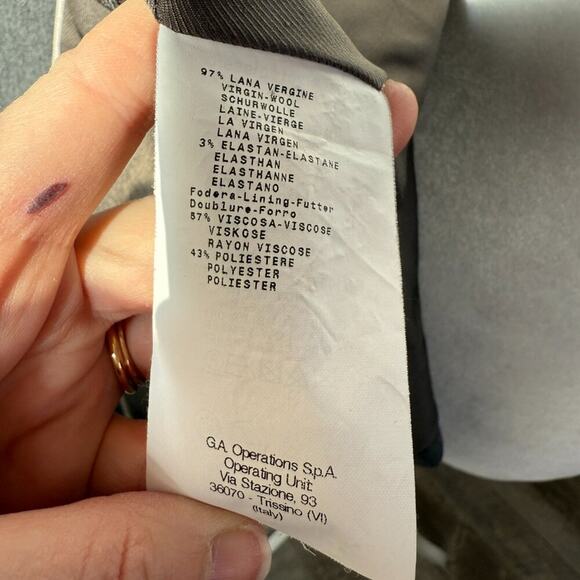 97% LANA VERGINE
VIRGIN-WOOL
SCHURWOLLE
LAINE-VIERGE
LA VIRGEN
LANA VIRGEN
3% ELASTAN-ELASTANE
ELASTHAN
ELASTHANNE
ELASTANO
Fodera-Lining-Futter
Doublure-Forro
57% VISCOSA-VISCOSE
VISKOSE
RAYON VISCOSE
43% POLIESTERE
POLYESTER
POLIESTER
G.A. Operations S.p.A.
Operating Unit:
Via Stazione, 93
36070 - Trissino (VI)
(Italy)